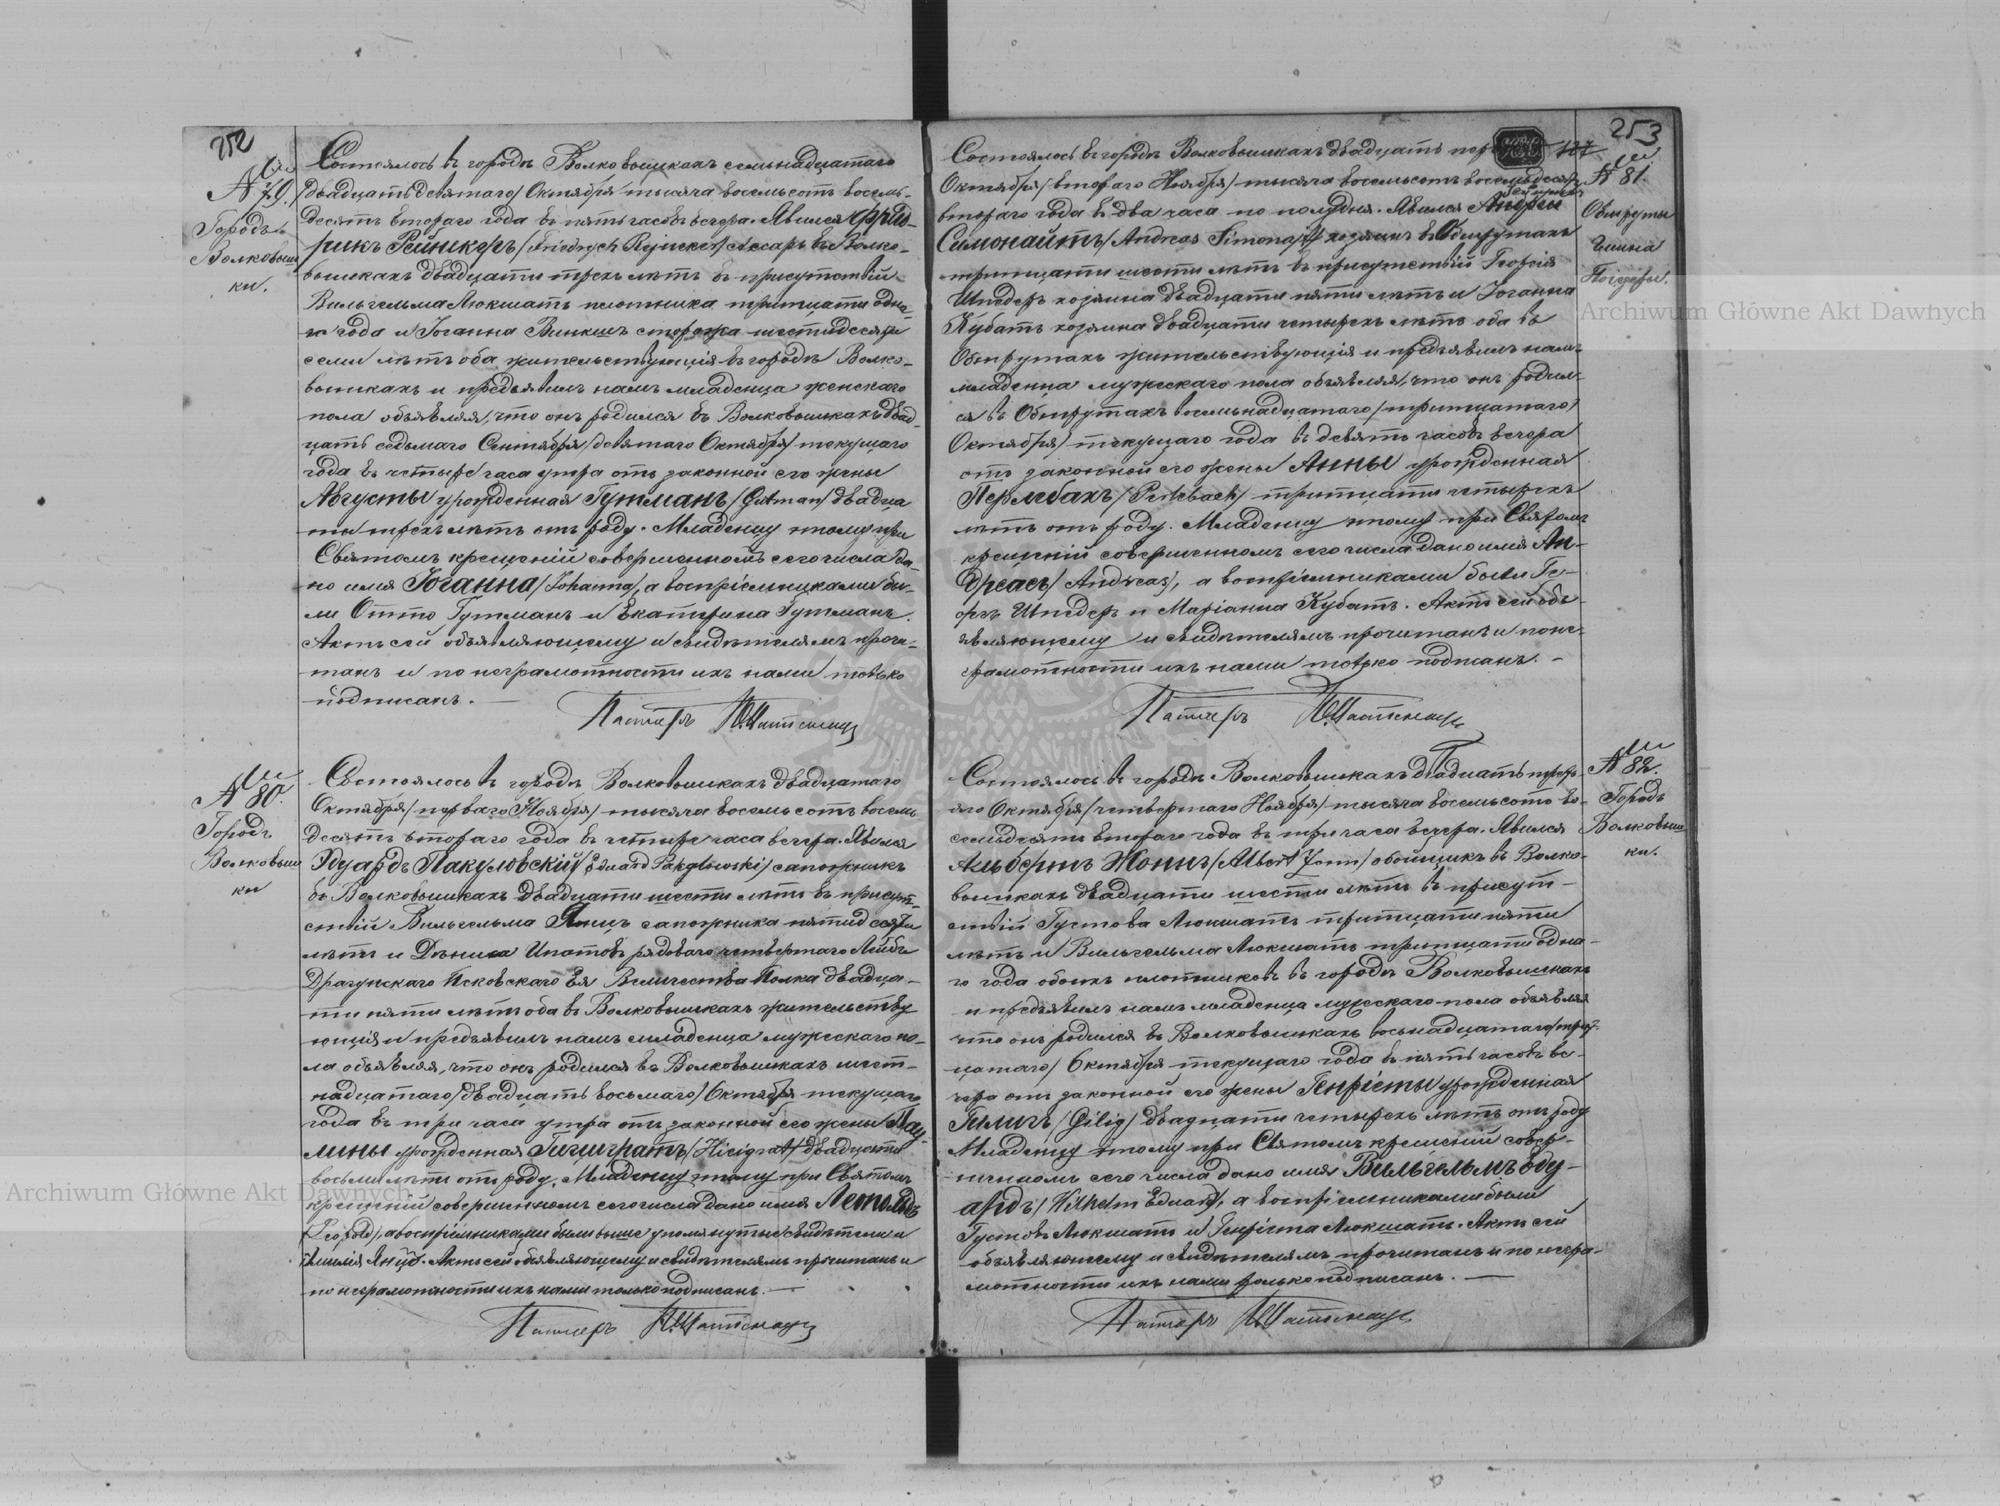 252
№ 79.
Городъ
Волковыш
ки.
Состоялось въ городѣ Волковышкахъ семьнадцатаго
/двадцать девятаго/ Октября тысяча восемьсотъ восемь-
десятъ втораго года въ пять часовъ вечера. Явился Фрид-
рихъ Рейникеръ /Friedrych Rejnicker/ слесарь въ Волко-
вышкахъ двадцати трехъ лѣтъ въ присутствіи
Вильгельма Люкшатъ плотника тритцати одна-
го года и Іоганна Винкшъ сторожа шестидесяти
семи лѣтъ оба жительствующія въ городѣ Волко-
вышкахъ и предъявилъ намъ младенца женскаго
пола объявляя, что онъ родился въ Волковышкахъ двад-
цать седьмаго Сентября /девятаго Октября/ текущаго
года въ четыре часа утра отъ законной его жены
Августы урожденная Гутманъ /Gutman/ двадца
ти трехъ лѣтъ отъ роду. Младенцу этому при
Святомъ крещеніи совершенномъ сего числа да-
но имя Іоганна /Johanna/, а воспріемниками бы-
ли Отто Гутманъ и Екатерина Гутманъ.
Актъ сей объявляющему и свидѣтелямъ прочи-
танъ и по неграмотности ихъ нами только
подписанъ. —
Пасторъ
№ 80.
Городъ
Волковыш
ки
Состоялось въ городѣ Волковышкахъ двадцатаго
Октября /перваго Ноября/ тысяча восемьсотъ восемь
десятъ втораго года въ четыре часа вечера. Явился
Эдуардъ Пакуловскій /Eduard Pakulowski/ сапожникъ
въ Волковышкахъ двадцати шести лѣтъ въ присут-
ствіи Вильгельма Янцъ сапожника пятидесяти
лѣтъ и Дениса Ипатовъ рядоваго четвертаго Лейбъ
Драгунскаго Псковскаго Ея Величества Полка двадца-
ти пяти лѣтъ оба въ Волковышкахъ жительству
ющія и предъявилъ намъ младенца мужескаго по-
ла объявляя, что онъ родился въ Волковышкахъ шест-
надцатаго /двадцать восьмаго/ Октября текущаго
года въ три часа утра отъ законной его жены Пау-
лины урожденная Гицигратъ /Hicigrat/ двадцати
восьми лѣтъ отъ роду. Младенцу этому при Святомъ
крещеніи совершенномъ сего числа дано имя Леопольдъ
/Leopold/, а воспріемниками были выше упомянутые свидѣтели и
Эмилія Янцъ. Актъ сей объявляющему и свидѣтелямъ прочитанъ и
по неграмотности ихъ нами только подписанъ. —
Пасторъ
253
127
№ 81.
Обшруты
Гмина
Состоялось въ городѣ Волковышкахъ двадцать
Октября /втораго Ноября/ тысяча восемьсотъ восемьдесятъ
втораго года въ два часа по полудни. Явился Андрей
Симонайтъ /Andreas Simonajt/ хозяинъ въ Обшрутахъ
тритцати шести лѣтъ въ присутствіи Георгія
Шпедеръ хозяина двадцати пяти лѣтъ и Іоганна
Кубатъ хозяина двадцати четырехъ лѣтъ оба въ
Обшрутахъ жительствующія и предъявилъ намъ
младенца мужескаго пола объявляя, что онъ родил-
ся въ Обшрутахъ восемьнадцатаго /тритцатаго/
Октября текущаго года въ девять часовъ вечера
отъ законной его жены Анны урожденная
Перлебахъ /Perlebach/ тритцати четырехъ
лѣтъ отъ роду. Младенцу этому при Святомъ
крещеніи совершенномъ сего числа дано имя Ан-
дреасъ /Andreas/, а воспріемниками были Ге-
оргъ Шпедеръ и Маріанна Кубатъ. Актъ сей объ-
являющему и свидѣтелямъ прочитанъ и по не-
грамотности ихъ нами только подписанъ. —
Пасторъ
№ 82.
Городъ
Волковыш
ки.
Состоялось въ городѣ Волковышкахъ двадцать
Октября /четвертаго Ноября/ тысяча восемьсотъ во-
семьдесятъ втораго года въ три часа вечера. Явился
Альбертъ Жоннъ /Albert Żonn/ обойщикъ въ Волко-
вышкахъ двадцати шести лѣтъ въ присут-
ствіи Густова Люкшатъ тритцати пяти
лѣтъ и Вильгельма Люкшатъ тритцати одна-
го года обоихъ плотниковъ въ городѣ Волковышкахъ
и предъявилъ намъ младенца мужескаго пола объявляя
что онъ родился въ Волковышкахъ восьнадцатаго /трит-
цатаго/ Октября текущаго года въ пять часовъ ве-
чера отъ законной его жены Генріеты урожденная
Гилигъ /Gilig/ двадцати четырехъ лѣтъ отъ роду
Младенцу этому при Святомъ крещеніи совер-
шенномъ сего числа дано имя Вильгельмъ Эду-
ардъ /Wilhelm Eduard/, а воспріемниками были
Густовъ Люкшатъ и Генріета Люкшатъ. Актъ сей
объявляющему и свидѣтелямъ прочитанъ и по негра-
мотности ихъ нами только подписанъ. —
Пасторъ
Archiwum Główne Akt Dawnych
Archiwum Główne Akt Dawnych